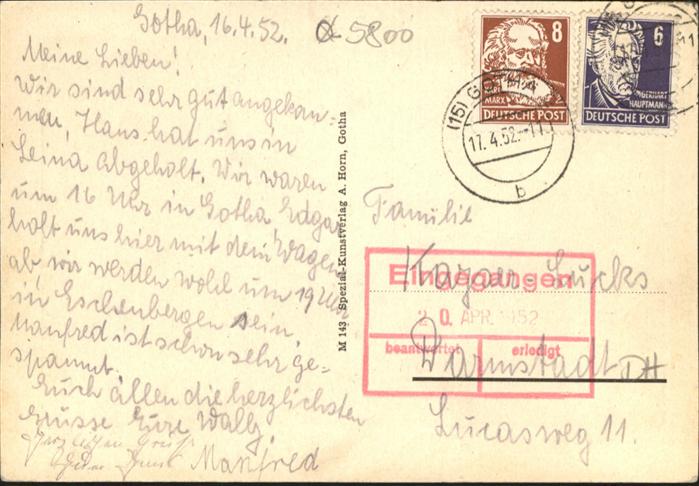 Gotha, 16.4.52.
5800
Meine Lieben!
Wir sind sehr gut angekom=
men, Hans hat uns in
Leina abgeholt. Wir waren
um 16 Uhr in Gotha Edgar
holt uns hier mit dem Wagen
ab, wir werden wohl um 19 Uhr
in Eschenbergen sein.
Manfred ist schon sehr ge=
spannt.
Euch allen die herzlichsten
Grüsse Eure Wally,
Manfred
M 143 Spezial-Kunstverlag A. Horn, Gotha
8
KARL
MARX
DEUTSCHE POST
6
GERHART
HAUPTMANN
DEUTSCHE POST
(15)
17.4.52.
b
Familie
Kayser-Lucks
Darmstadt
Lucasweg 11.
Eingegangen
20. APR. 1952
beantwortet
erledigt